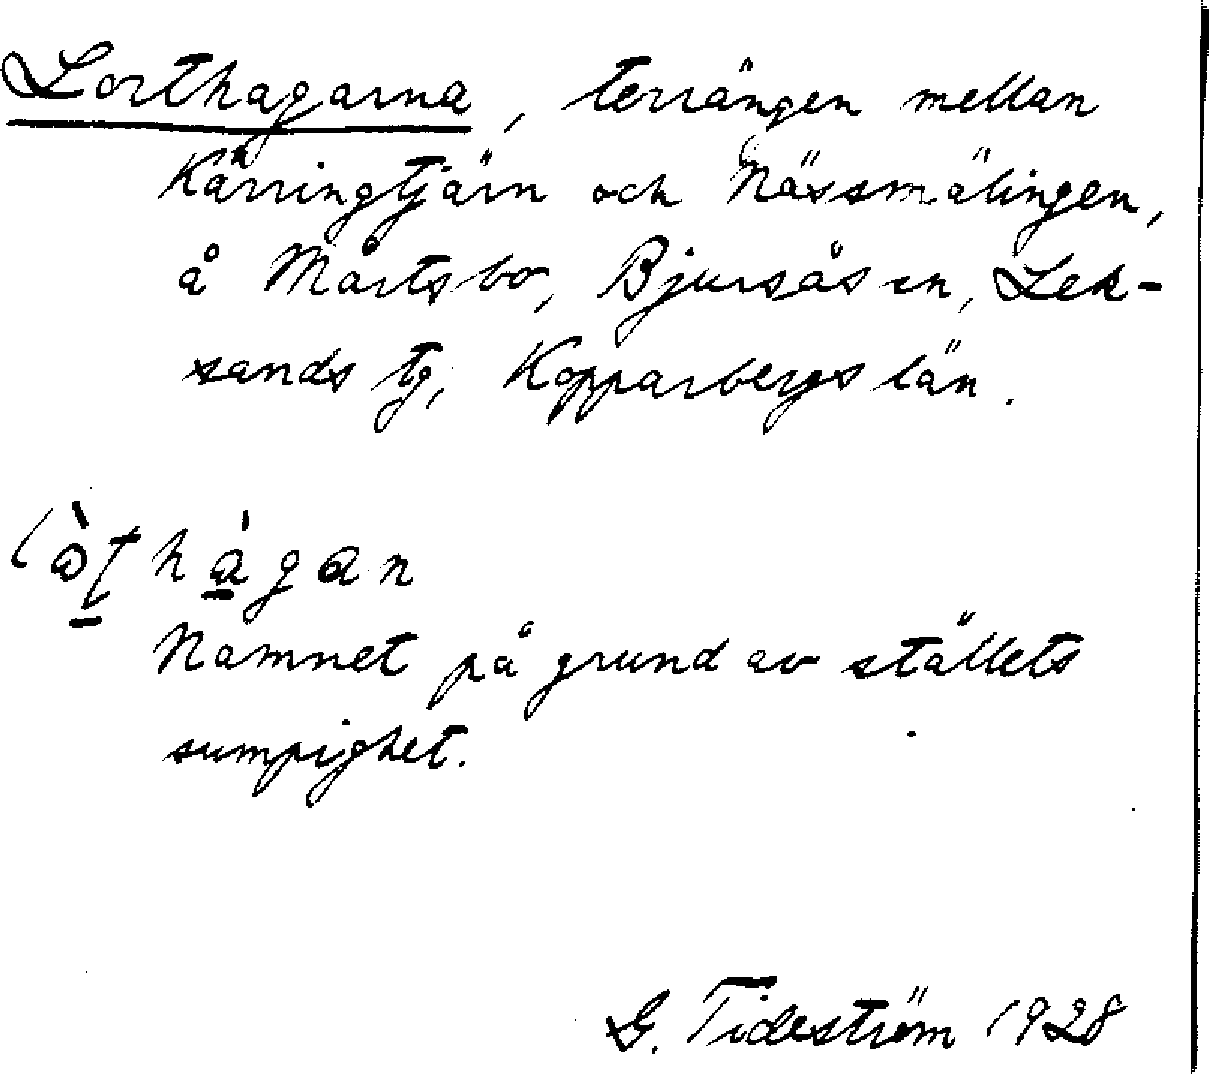 Lorthagarna, terrängen mellan
Kärringtjärn och Nässmälingen,
å Mårtsbo, Bjursås sn, Lek-
sands tg, Kopparbergs län.
Namnet på grund av ställets
sumpighet.
G. Tideström 1928